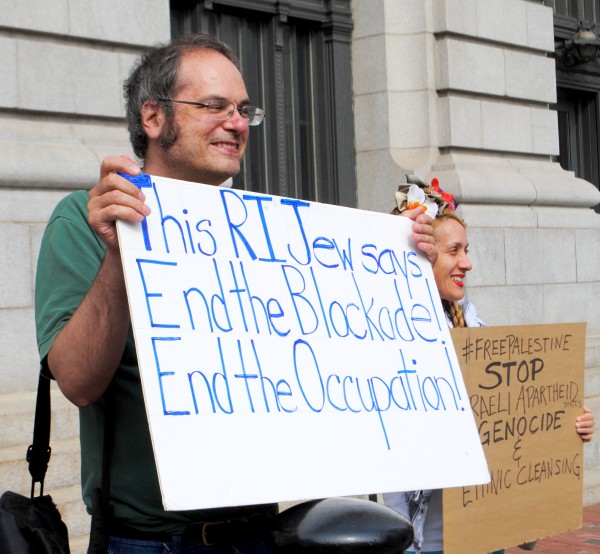 This RI Jew says
End the Blockade!
End the Occupation!
#FREEPALESTINE
STOP
RAELI APARTHEID
GENOCIDE
&
ETHNIC CLEANSING